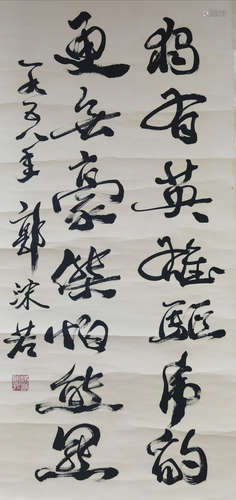 独有英雄驱虎豹
更无豪杰怕熊罴
一九五八年 郭沫若